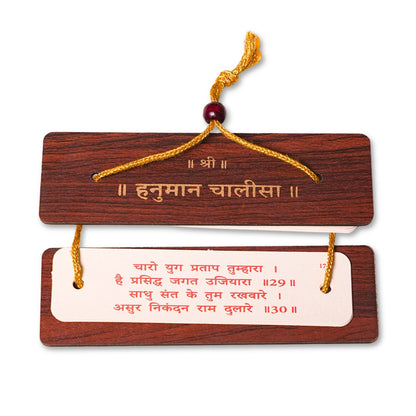 ॥ श्री ॥
॥ हनुमान चालीसा ॥
चारो युग प्रताप तुम्हारा ।
है प्रसिद्ध जगत उजियारा ॥29॥
साधु संत के तुम रखवारे ।
असुर निकंदन राम दुलारे ॥30॥